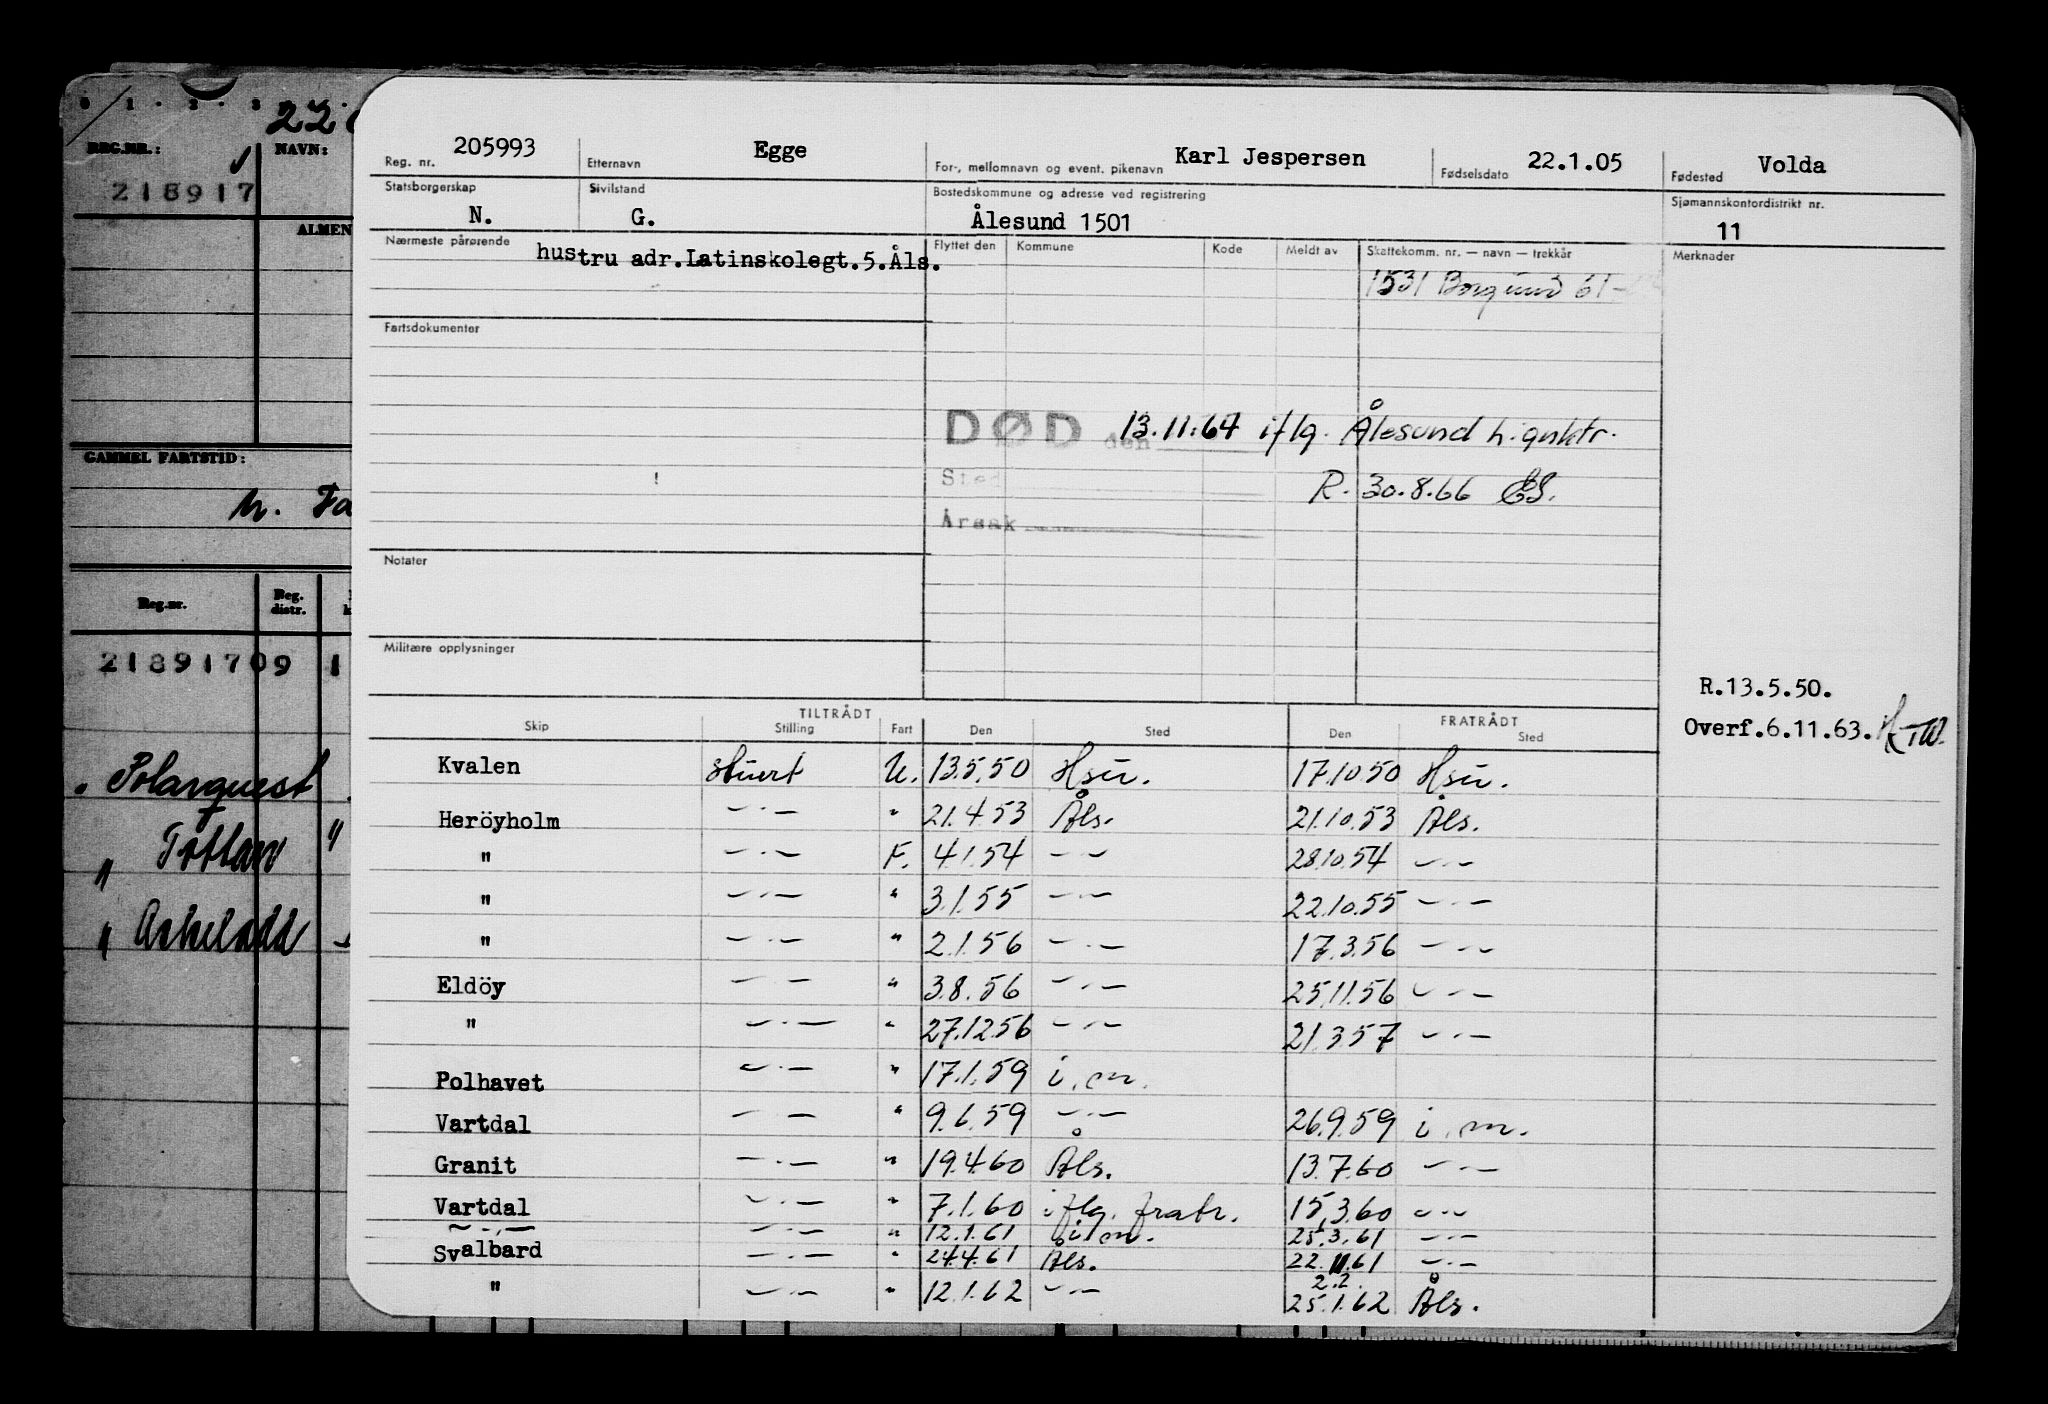 0 1 2 3
22
REG.NR.: NAVN:
218917
ALMEN
GAMMEL FARTSTID:
Reg.nr. Reg. distr.
21891709 1
" Polarquest
" Tottan "
" Askeladd
Reg. nr. 205993 Etternavn Egge For-, mellomnavn og event. pikenavn Karl Jespersen Fødselsdato 22.1.05 Fødested Volda
Statsborgerskap N. Sivilstand G. Bostedskommune og adresse ved registrering Ålesund 1501 Sjømannskontordistrikt nr. 11
Nærmeste pårørende hustru adr.Latinskolegt.5.Åls. Flyttet den Kommune Kode Meldt av Skattekomm. nr. — navn — trekkår Merknader
1531 Borgund 61-
Fartsdokumenter
DØD den 13.11.64 iflg. Ålesund
Sted R. 30.8.66
Årsak
Notater
Militære opplysninger
R.13.5.50.
Overf.6.11.63.
TILTRÅDT FRATRÅDT
Skip Stilling Fart Den Sted Den Sted
Kvalen stuert U. 13.5.50 Hsu. 17.10.50 Hsu.
Heröyholm —·— " 21.4.53 Åls. 21.10.53 Åls.
" —·— F. 4.1.54 —·— 28.10.54 —·—
" —·— " 3.1.55 —·— 22.10.55 —·—
" —·— " 2.1.56 —·— 17.3.56 —·—
Eldöy —·— " 3.8.56 —·— 25.11.56 —·—
" —·— " 27.12.56 —·— 21.3.57 —·—
Polhavet —·— " 17.1.59 i.m.
Vartdal —·— " 9.6.59 —·— 26.9.59 i.m.
Granit —·— " 19.4.60 Åls. 13.7.60 —·—
Vartdal —·— " 7.1.60 iflg. fratr. 15.3.60 —·—
—·— —·— " 12.1.61 i.m. 25.3.61 —·—
Svalbard —·— " 24.4.61 Åls. 22.11.61 —·—
" —·— " 12.1.62 —·— 2.2. 25.1.62 Åls.